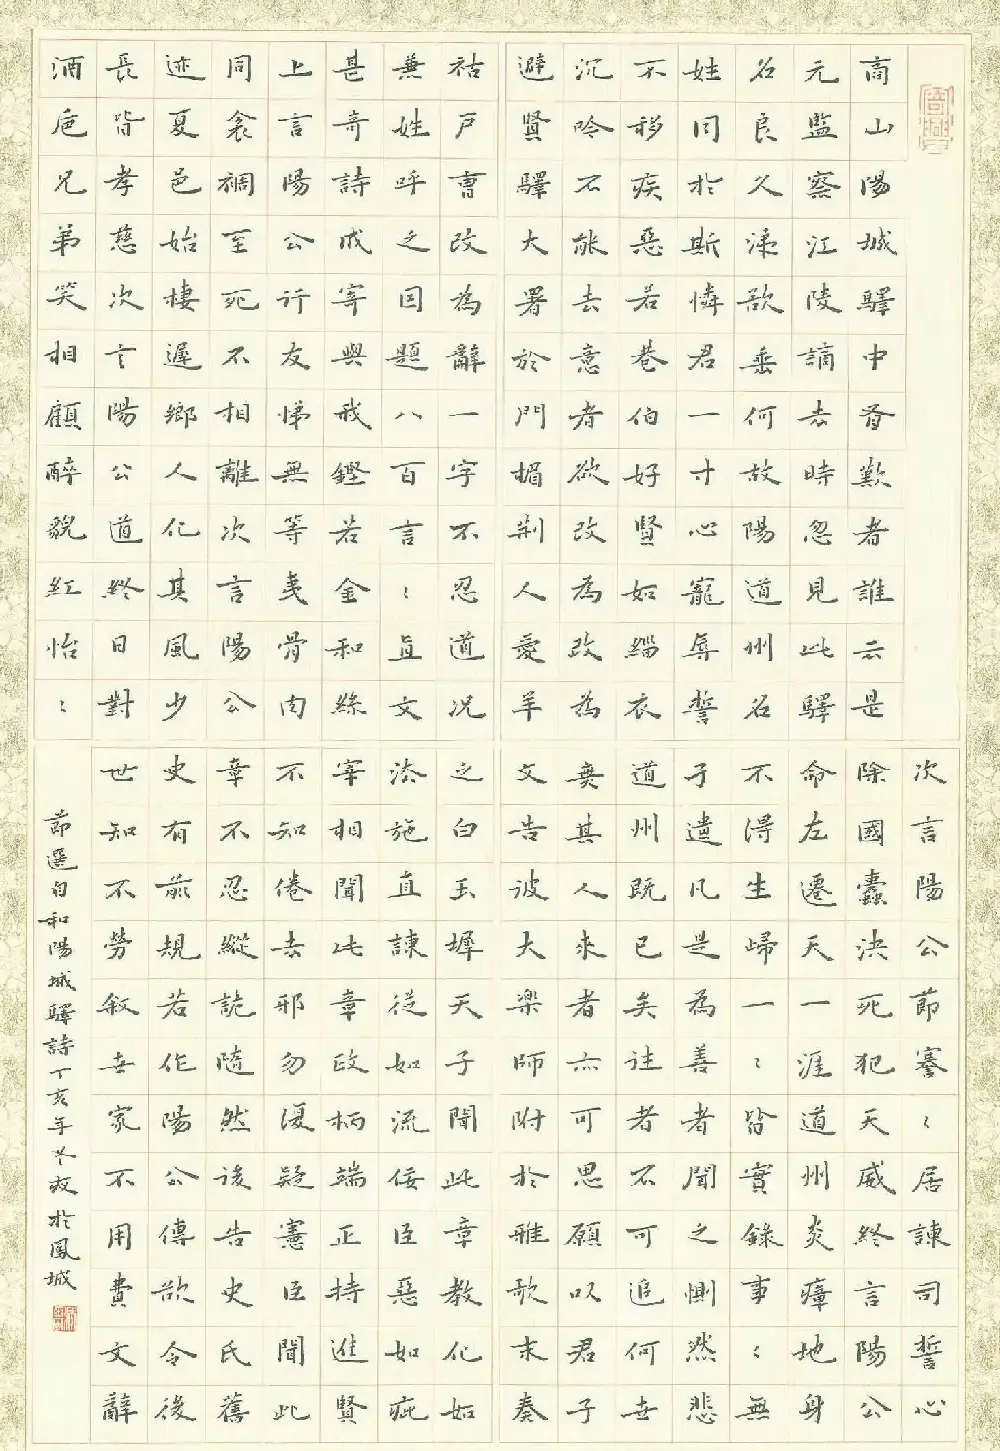 商山陽城驛中有歎者誰云是
元監察江陵謫去時忽見此驛
名良久涕欲垂何故陽道州名
姓同於斯憐君一寸心寵辱誓
不移疾惡若巷伯好賢如緇衣
沉吟不能去意者欲改為改為
避賢驛大署於門楣荊人愛羊
祜戶曹改為辭一字不忍道況
兼姓呼之因題八百言〻直文
甚奇詩成寄與我鏗若金和絲
上言陽公行友悌無等夷骨肉
同衾裯至死不相離次言陽公
迹夏邑始棲遲鄉人化其風少
長皆孝慈次言陽公道終日對
酒卮兄弟笑相顧醉貌紅怡〻
次言陽公節謇〻居諫司誓心
除國蠹決死犯天威終言陽公
命左遷天一涯道州炎瘴地身
不得生歸一〻皆實錄事〻無
孑遺凡是為善者聞之惻然悲
道州既已矣往者不可追何世
無其人來者亦可思願以君子
文告彼大樂師附於雅歌末奏
之白玉墀天子聞此章教化如
法施直諫從如流佞臣惡如疵
宰相聞此章政柄端正持進賢
不知倦去邪勿復疑憲臣聞此
章不忍縱詭隨然後告史氏舊
史有前規若作陽公傳欲令後
世知不勞敘世家不用費文辭
節選自和陽城驛詩丁亥年冬夜於鳳城